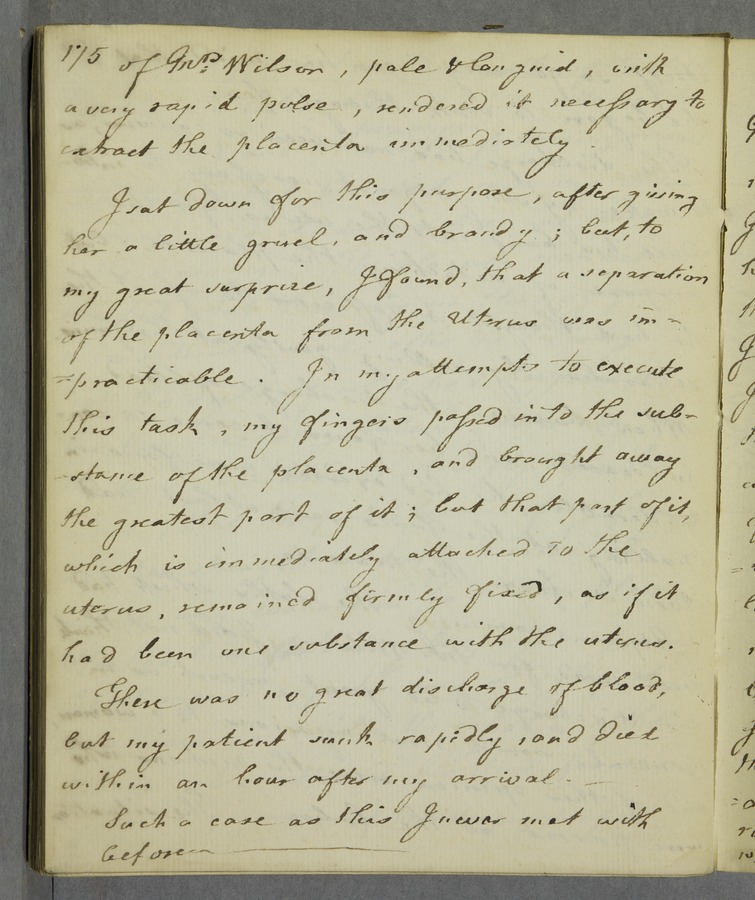 175 of Mrs: Wilson, pale & languid, with
a very rapid pulse, rendered it necessary to
extract the placenta immediately.
I sat down for this purpose, after giving
her a little gruel, and brandy; but, to
my great surprize, I found, that a separation
of the placenta from the Uterus was im=
=practicable. In my attempts to execute
this task, my fingers passed into the sub=
-stance of the placenta, and brought away
the greatest part of it; but that part of it,
which is immediately attached to the
uterus, remained firmly fixed, as if it
had been one substance with the uterus.
There was no great discharge of blood,
but my patient sunk rapidly, and died
within an hour after my arrival. —
Such a case as this I never met with
before